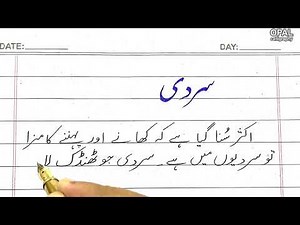 OPAL
calligraphy
DATE: DAY:
سردی
اکثر سُنا گیا ہے کہ کھانے اور پہننے کا مزا
تو سردیوں میں ہے۔ سردی جو ٹھنڈک لا